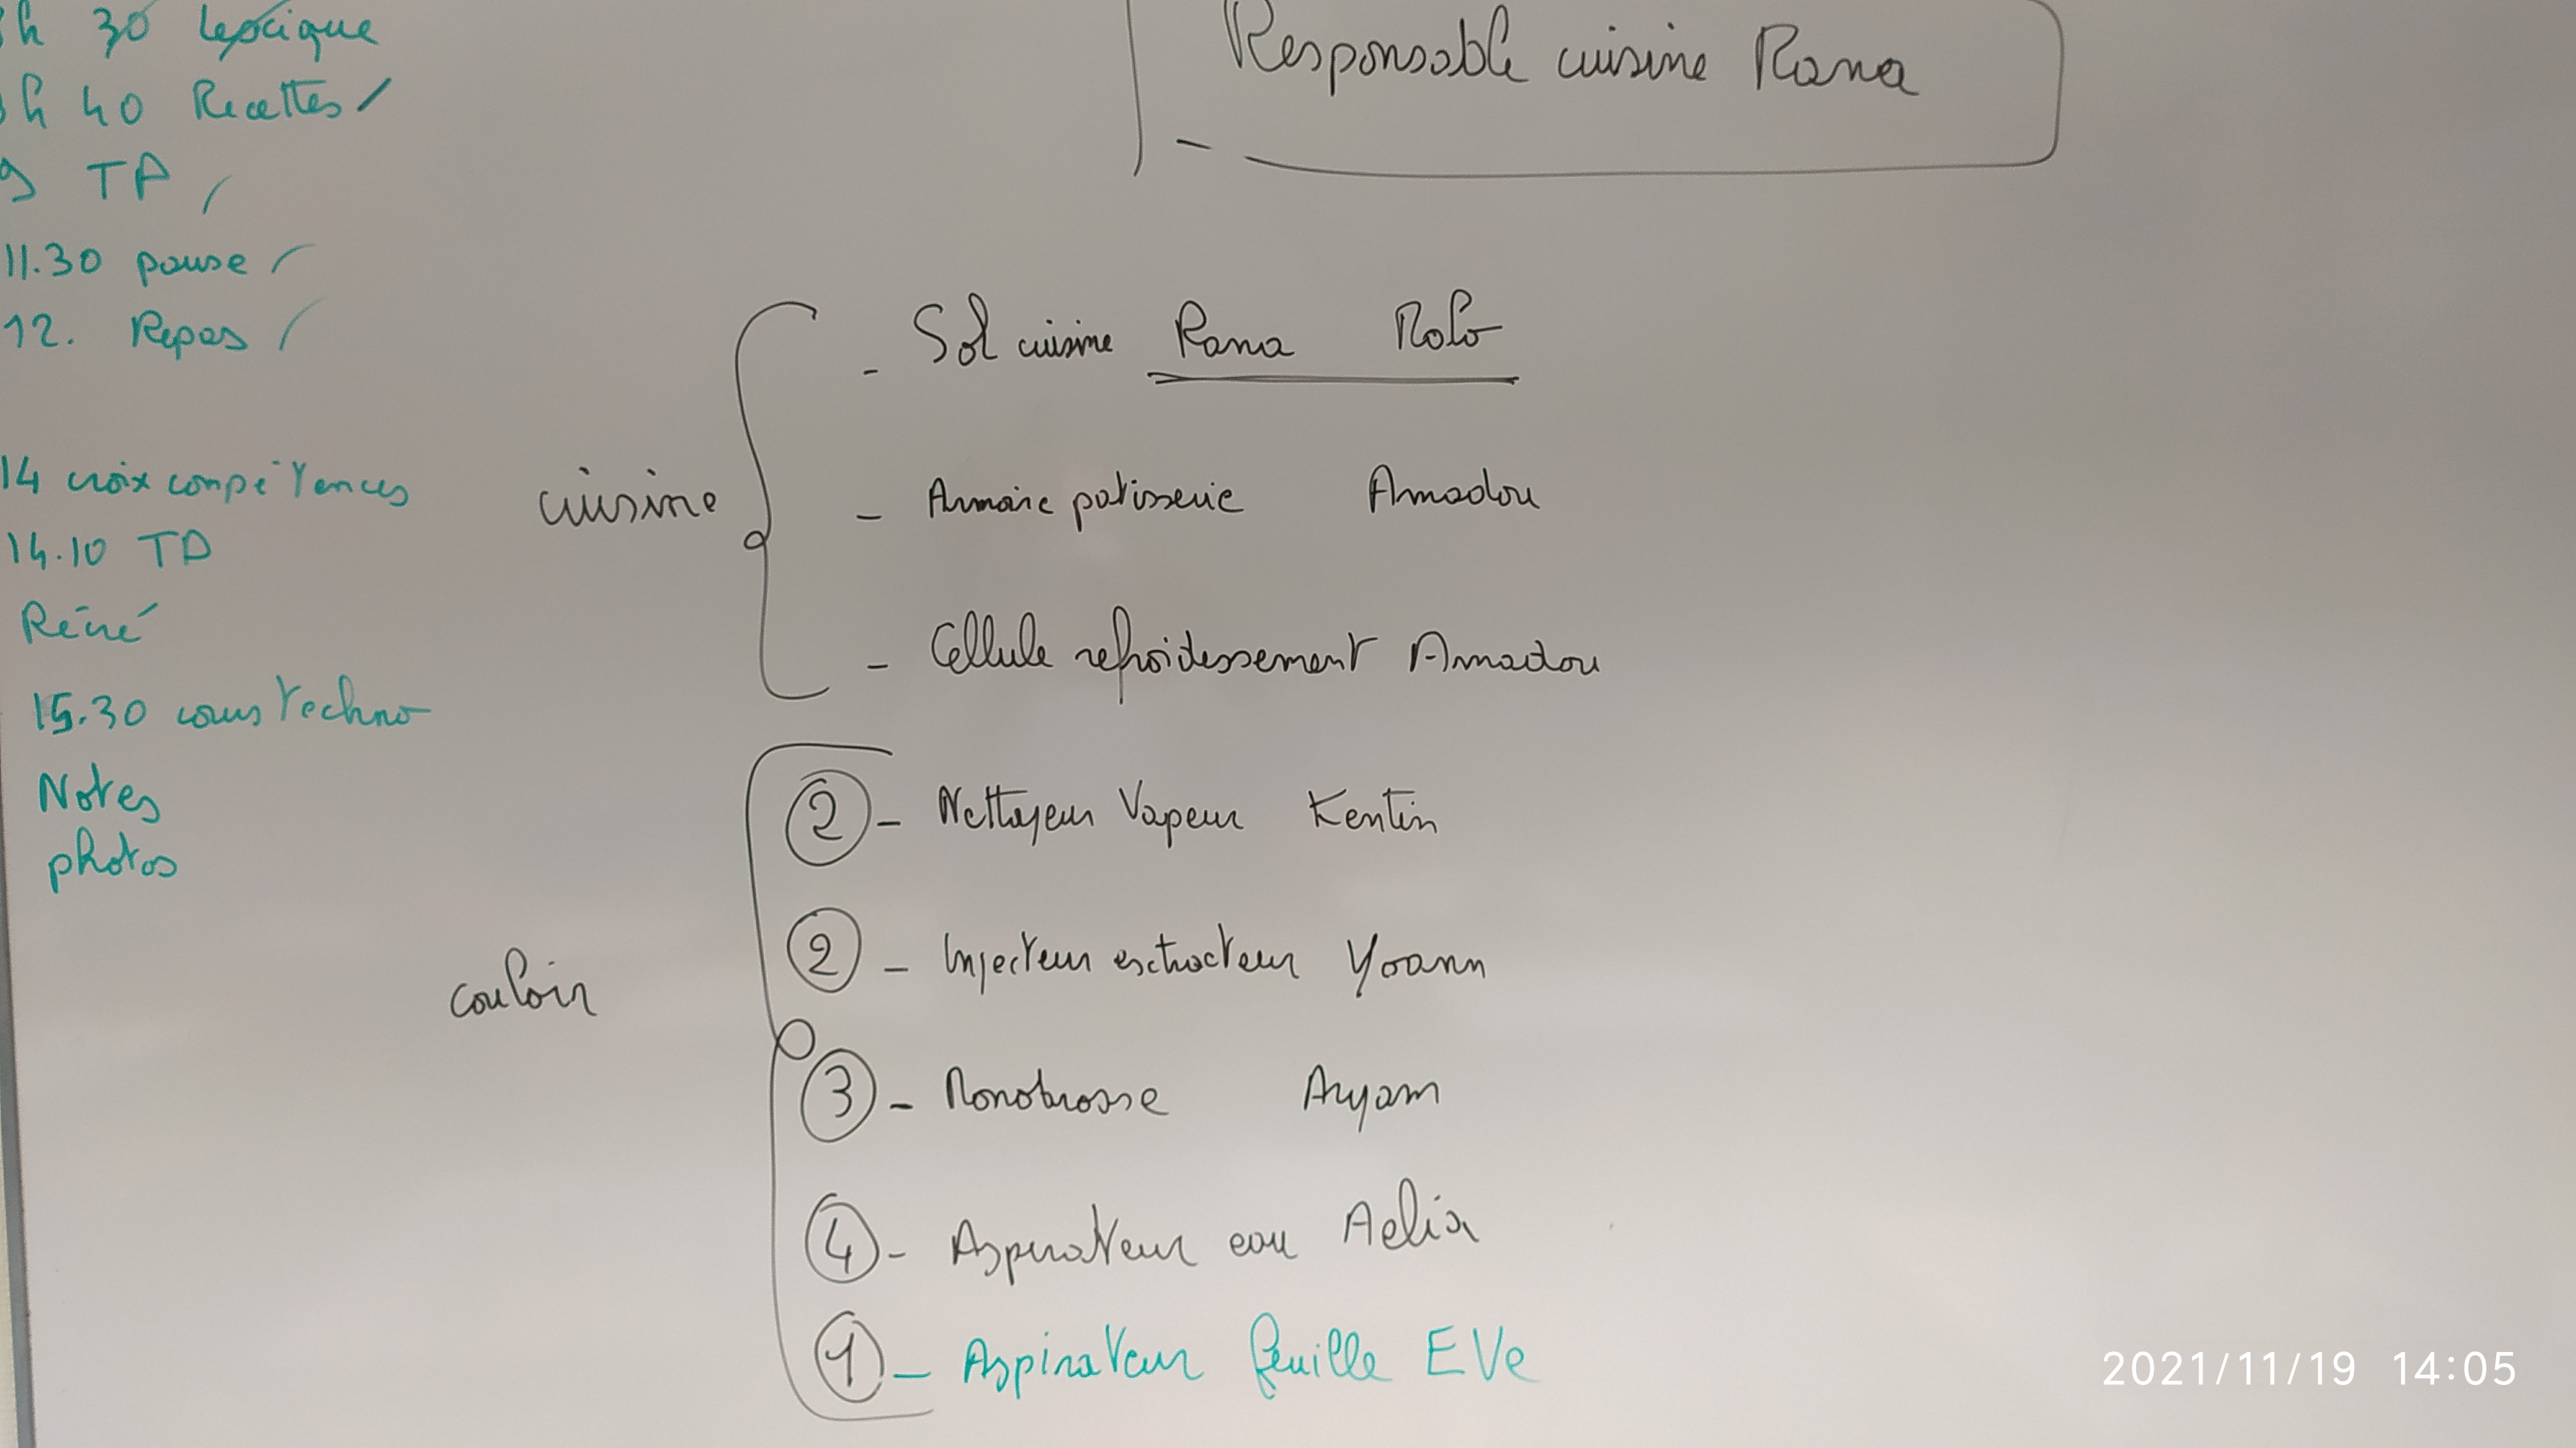 h 30 Lexique
h 40 Recettes /
9 TP /
11.30 pause /
12. Repas /
14 croix compétences
14.10 TP
15.30 cours techno
Notes
photos
Responsable cuisine Rana
cuisine
- Sol cuisine Rana Rolo
- Armoire patisserie Amadou
- Cellule refroidissement Amadou
couloir
2 - Nettoyeur Vapeur Kentin
2 - Injecteur extracteur Yoann
3 - Monobrosse Aryam
4 - Aspirateur eau Aelia
1 - Aspirateur feuille EVe
2021/11/19 14:05